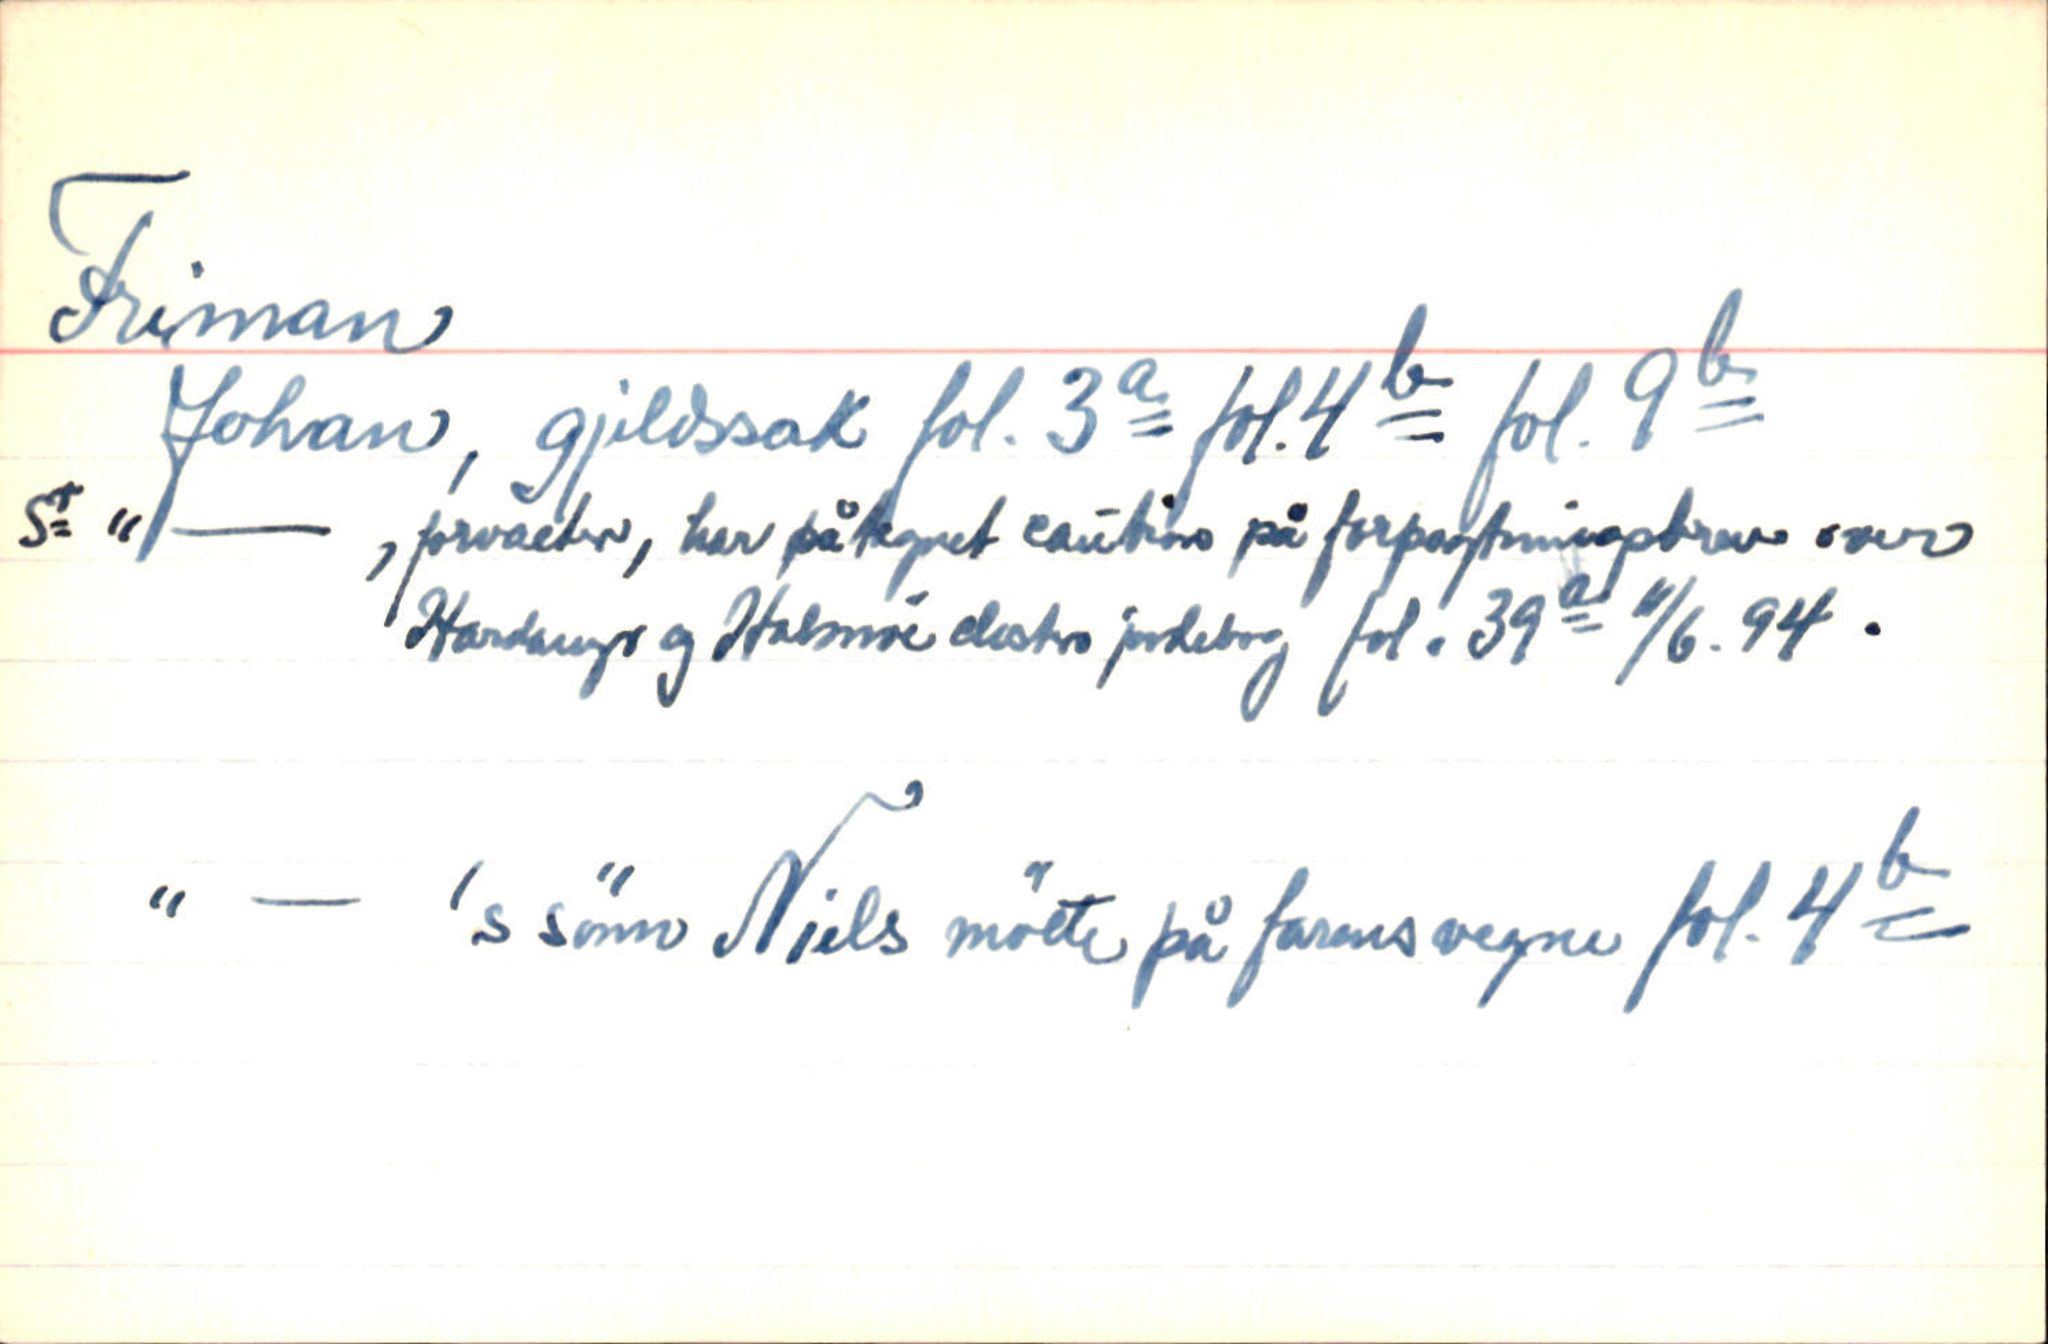 Friman
Johan, gjeldssak fol. 3a fol. 4b fol. 9b
Sr " — , forvalter, har påtegnet caution på forpagtningsbrev over
Hardanger og Halsnøi closters jordebog fol. 39a 11/6. 94.
" — 's sönn Niels mötte på farens vegne fol. 4b